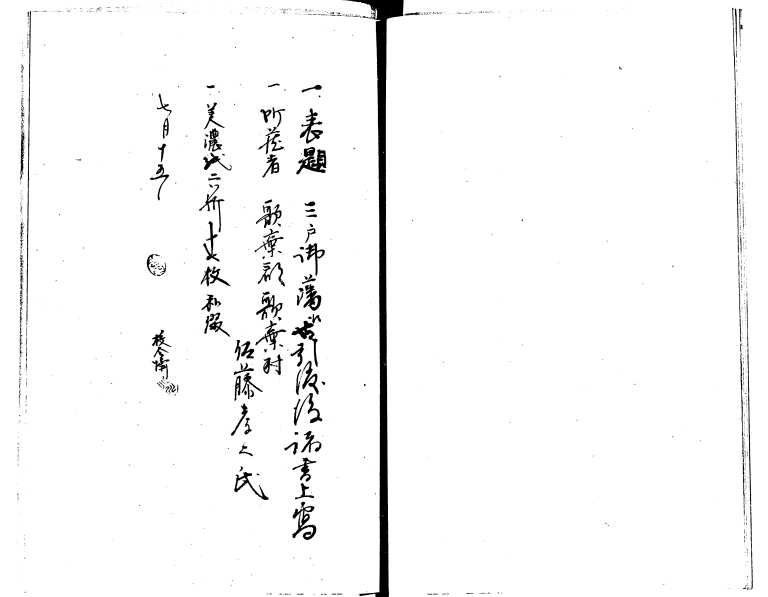 一、表題　三戸御藩江御引渡後諸書上写
一、所蔵者　歌棄郡歌棄村
佐藤孝之氏
一、美濃紙二ツ折　十七枚和綴
七月十五日
校合済